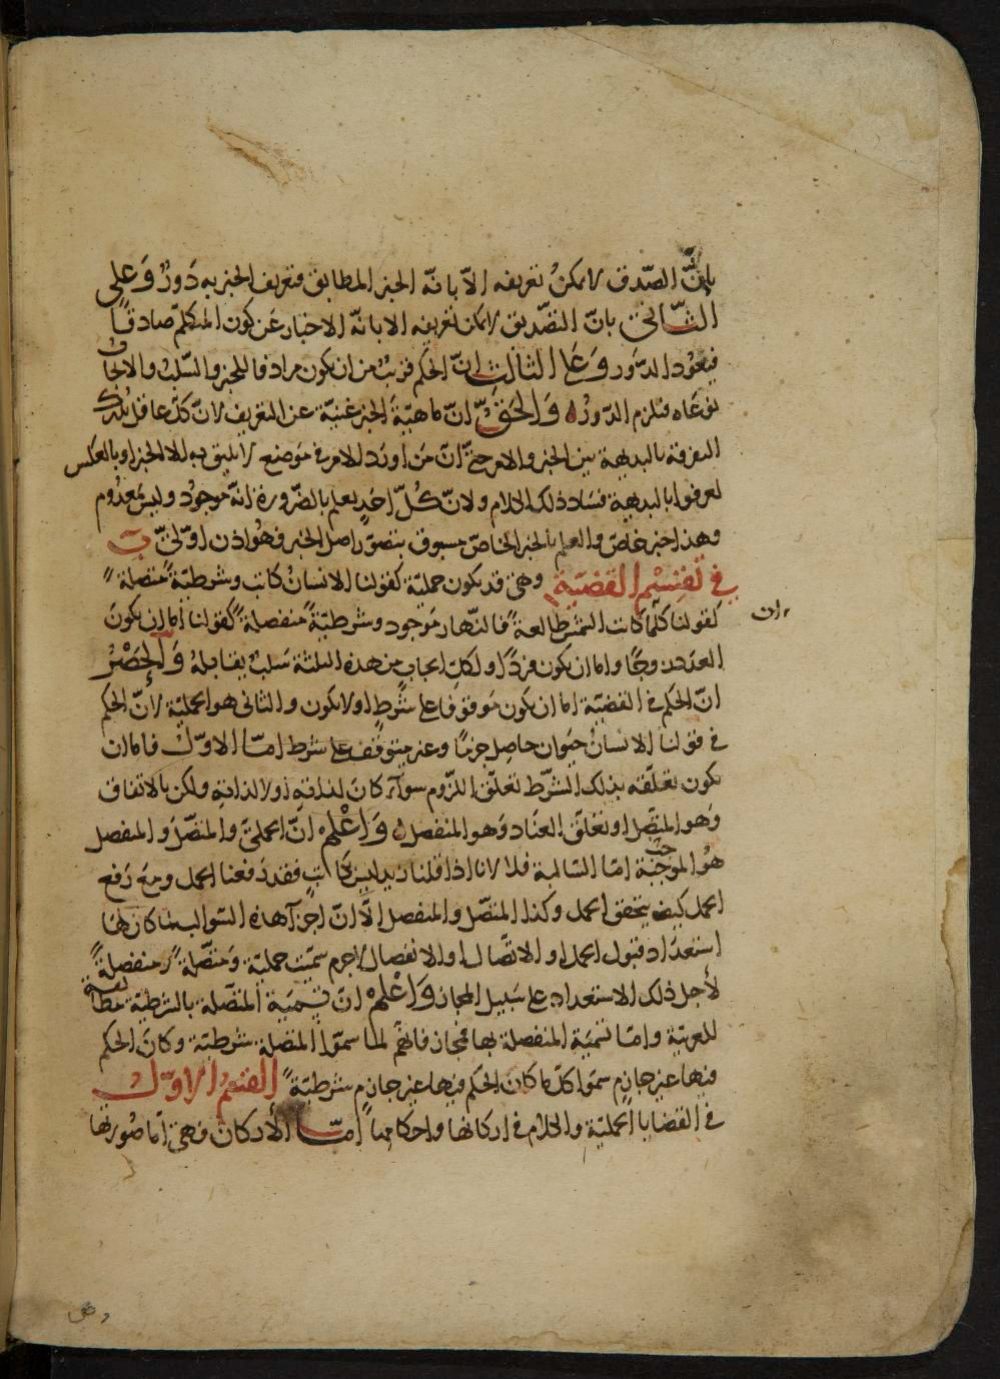 بانّ الصّدق لا يمكنُ تعريفه الّا بانّه الخبر المطابق فتعريف الخبر به دَورٌ وَعلى
الثّانى بانّ التصّديق لا يمكن تعريفه الا بانّه الاخبار عَن كون المتكلمّ صادقًا
فيعُود الدّور وَعَلى الثالثِ انّ الحكم قريبٌ من ان يكون مرادفا للخبر والسّلبُ والايجاب
نوعَاه فيلزم الدّورُ وَالحَقُّ انّ ماهيّة الخبر غنيّة عن التعريف لانّ كلّ عاقل يُدرك
التفرقة بالبديهة بين الخبر والامر حتّى انّ مَن اورَد الامر فى مَوضع لا يليق به الا الخبر او بالعكس
لعرفوا بالبديهة فسَاد ذلك الكلام ولانّ كُلّ احَدٍ يعلم بالضّرورة انّه مَوجُود وليسَ بمعدُوم
وهذا خبر خاصّ والعلم بالخبر الخاصّ مسبوق بتصوّر اصل الخبر فهُو اذن اوّلىّ ب
فى تقسيم القضيّة وهى قد يكون حمليّة كقولنا الانسانُ كاتب وشرطيّة متصلة
كقولنا كلّما كانت الشمس طالعة فالنّهار مَوجود وشرطيّة منفصلة كقولنا امّا ان يكونَ
ان
العدَد زوجًا واما ان يكون فردًا ولكلّ ايجاب من هذه الثلثة سَلبٌ يقابلهُ وَالحَصْرُ
انّ الحكم فى القضيّة اما ان يكون مَوقوفا على شرطٍ او لا يكون والثانى هو الحمليّة لانّ الحكم
فى قولنا الانسانُ حَيوان حاصِل جزمًا وغير متوقّف على شرط امّا الاوّل فاما ان
يكون تعلّقه بذلك الشّرط تعلّق اللزّوم سوآء كانَ لذاته او لا لذاته ولكن بالاتفاق
وَهو المتصِّل او تعلّق العنَاد وَهو المنفصل وَاعْلم انّ الحملىّ والمتصّل وَالمنفصل
هُو الموجبة امّا السّالبة فلا لانا اذا قلنا زيد ليسَ بكاتب فقد رَفعنا الحمل ومعَ رَفع
الحمل كيف يتحقق الحمل وكذا المتصّل والمنفصل الّا انّ اجزآ هذه السّوالب لما كان لهَا
استعدَاد قبول الحمل او الاتّصال او الانفصال لا جرم سمّيت حمليّة وَمتصّلة ومنفصلةً
لأجل ذلك الاستعداد على سَبيل المجاز وَاعْلم انّ تسْمَية المتصّلة بالشرطيّة مطابقة
للعربيّة وامّا تسمية المنفصلة بها فمجاز فانّهم لما سموّا المتصّلة شرطيّة وكان الحكم
فيها غير جازم سموّا كلّ ما كان الحكم فيها غير جازم شرطيّة القسْمُ الاوّلُ
فى القضايا الحمليّة والكلام فى اركانها واحكامها امّا الأركان فهى امّا صُورتها